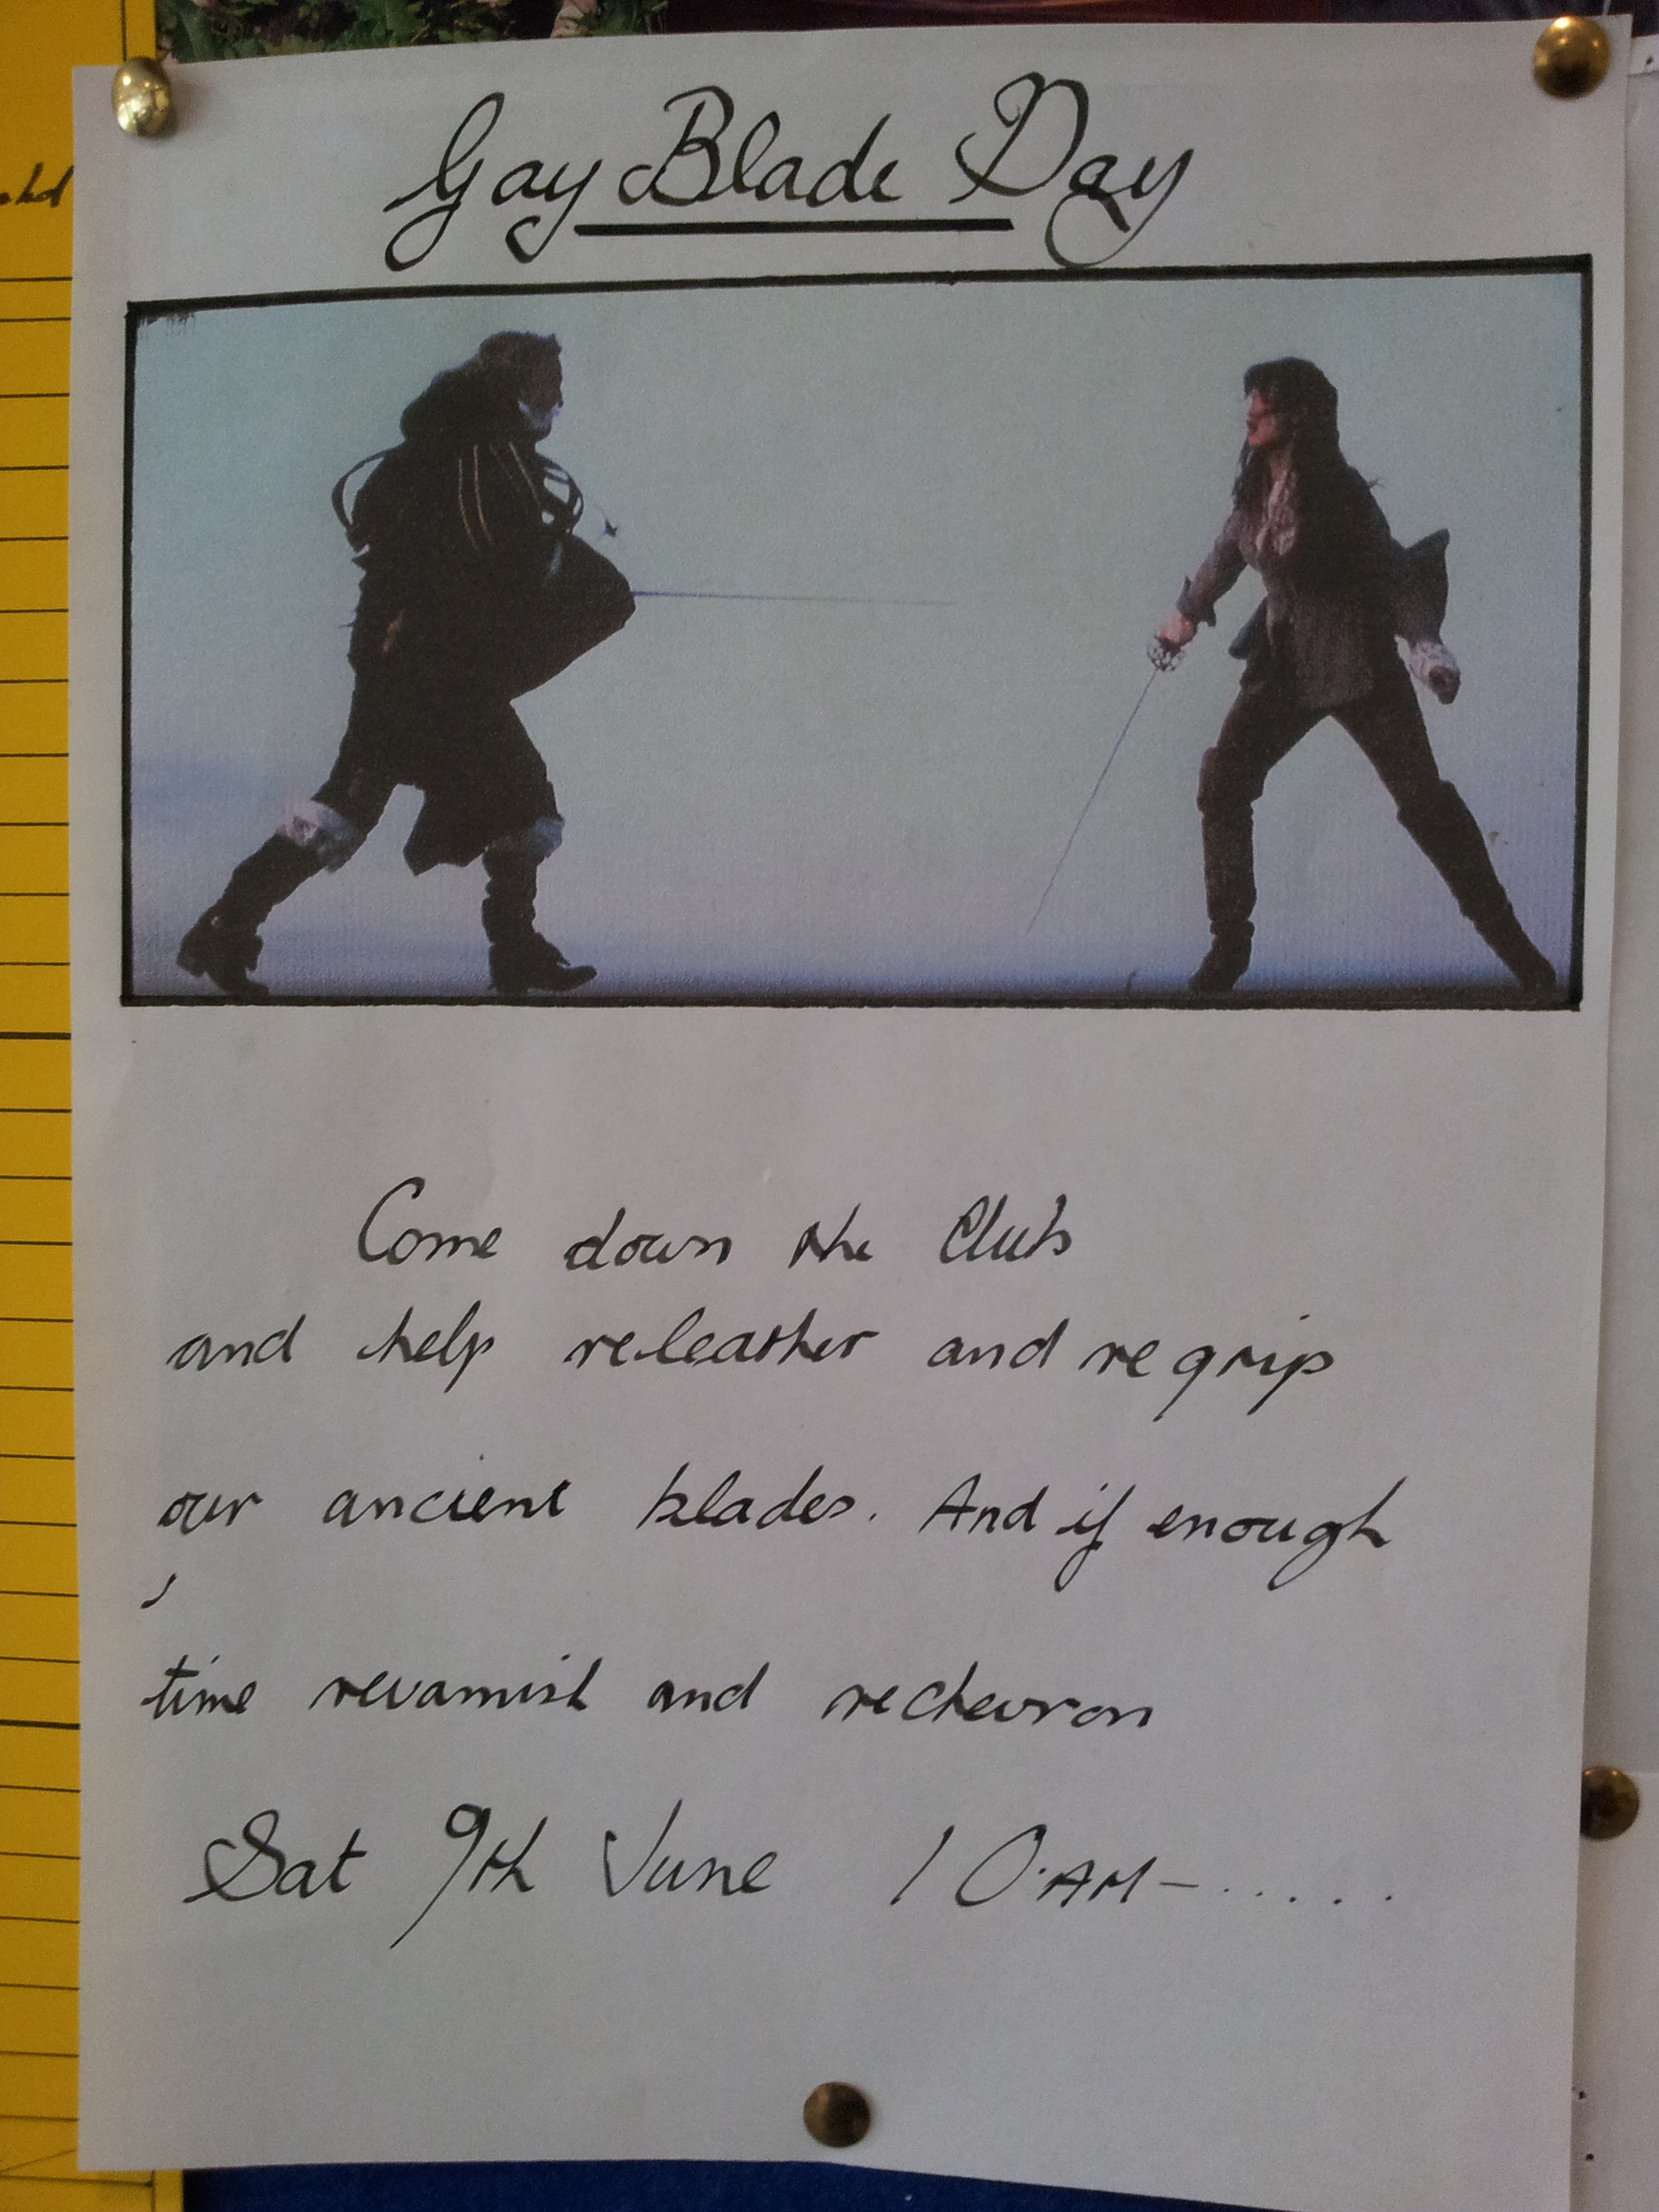 Gay Blade Day
Come down the Club
and help releather and regrip
our ancient blades. And if enough
time revarnish and rechevron
Sat 9th June 10.AM-.....